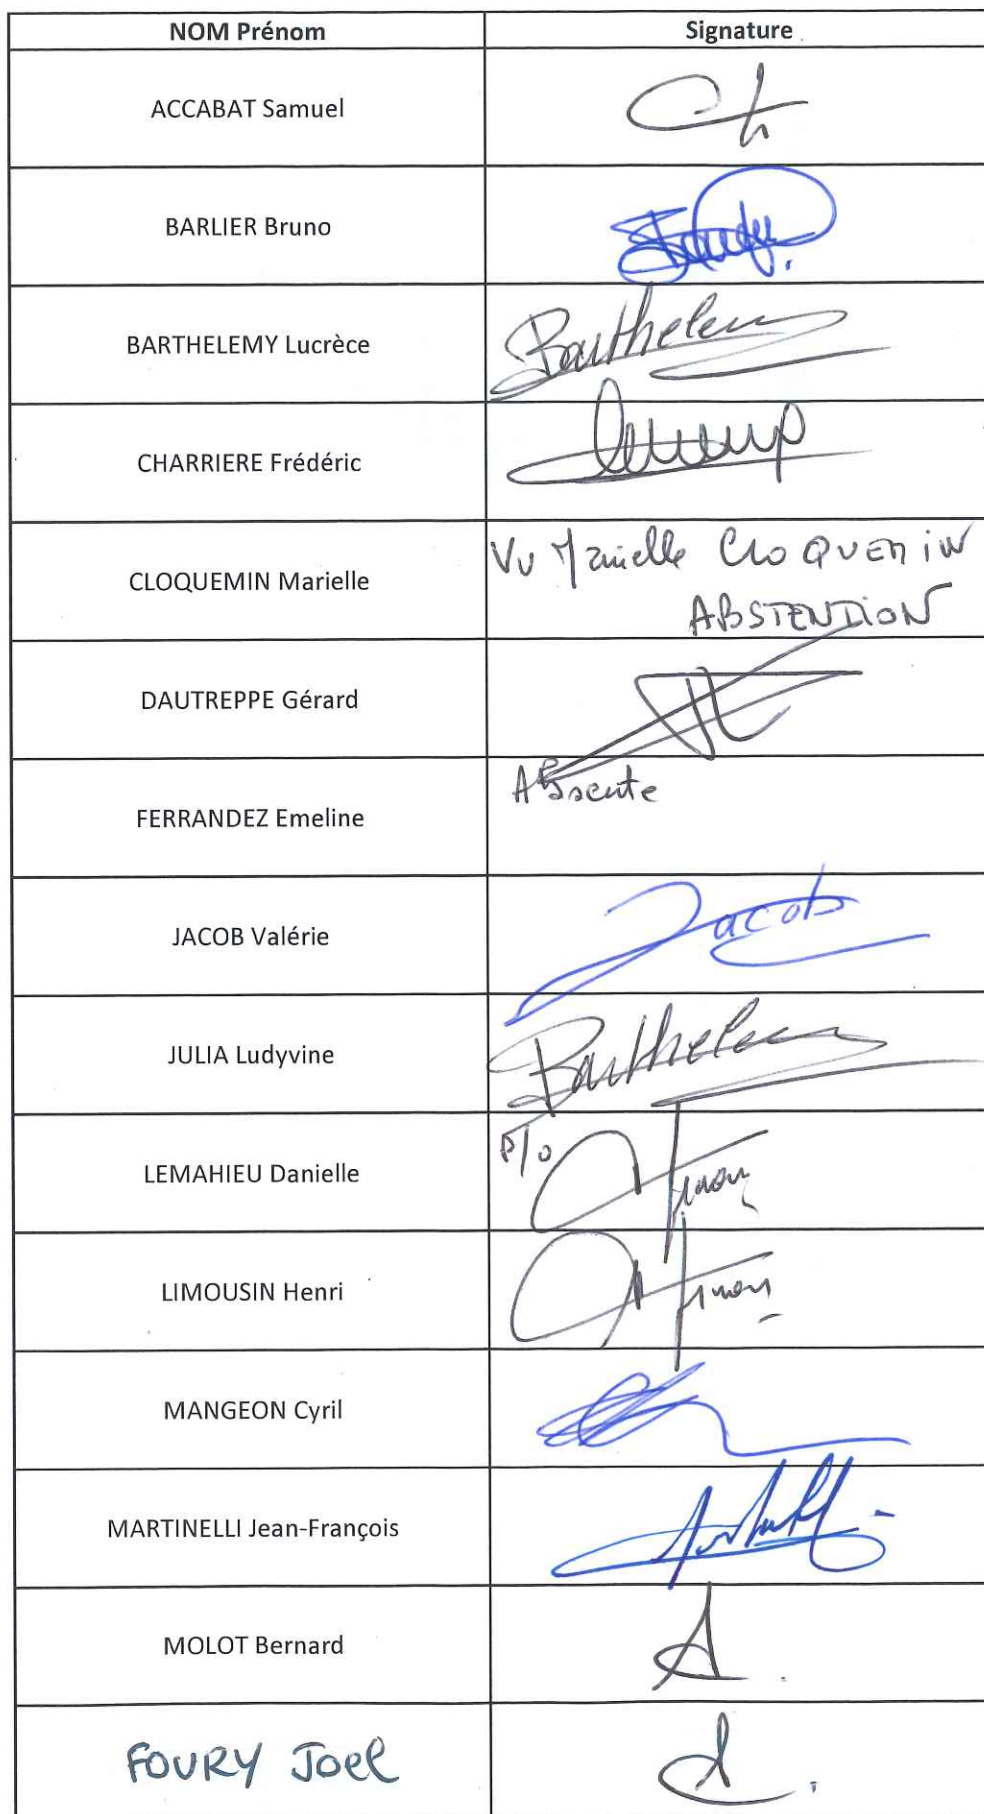 NOM Prénom Signature
ACCABAT Samuel
BARLIER Bruno
BARTHELEMY Lucrèce Barthelemy
CHARRIERE Frédéric
CLOQUEMIN Marielle Vu Marielle CLOQUEMIN
ABSTENTION
DAUTREPPE Gérard
FERRANDEZ Emeline ABsente
JACOB Valérie Jacob
JULIA Ludyvine Barthelemy
LEMAHIEU Danielle P/o
LIMOUSIN Henri
MANGEON Cyril
MARTINELLI Jean-François
MOLOT Bernard
FOURY Joel